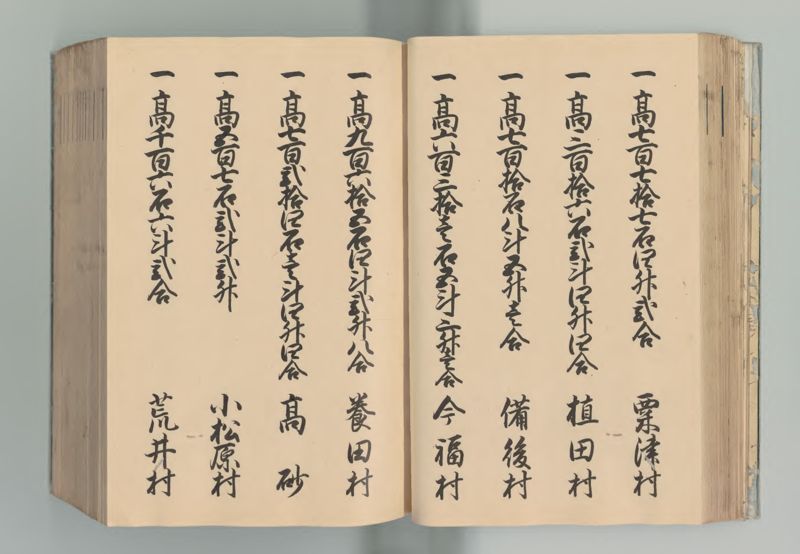 一 高七百七拾七石四升弐合 粟津村
一 高三百拾六石弐斗四升四合 植田村
一 高七百拾石八斗五升壱合 備後村
一 高六百三拾壱石五斗三升壱合 今福村
一 高九百六拾五石四斗弐升八合 養田村
一 高七百弐拾四石壱斗四升四合 高砂
一 高五百七石弐斗弐升 小松原村
一 高千百六石六斗弐合 荒井村